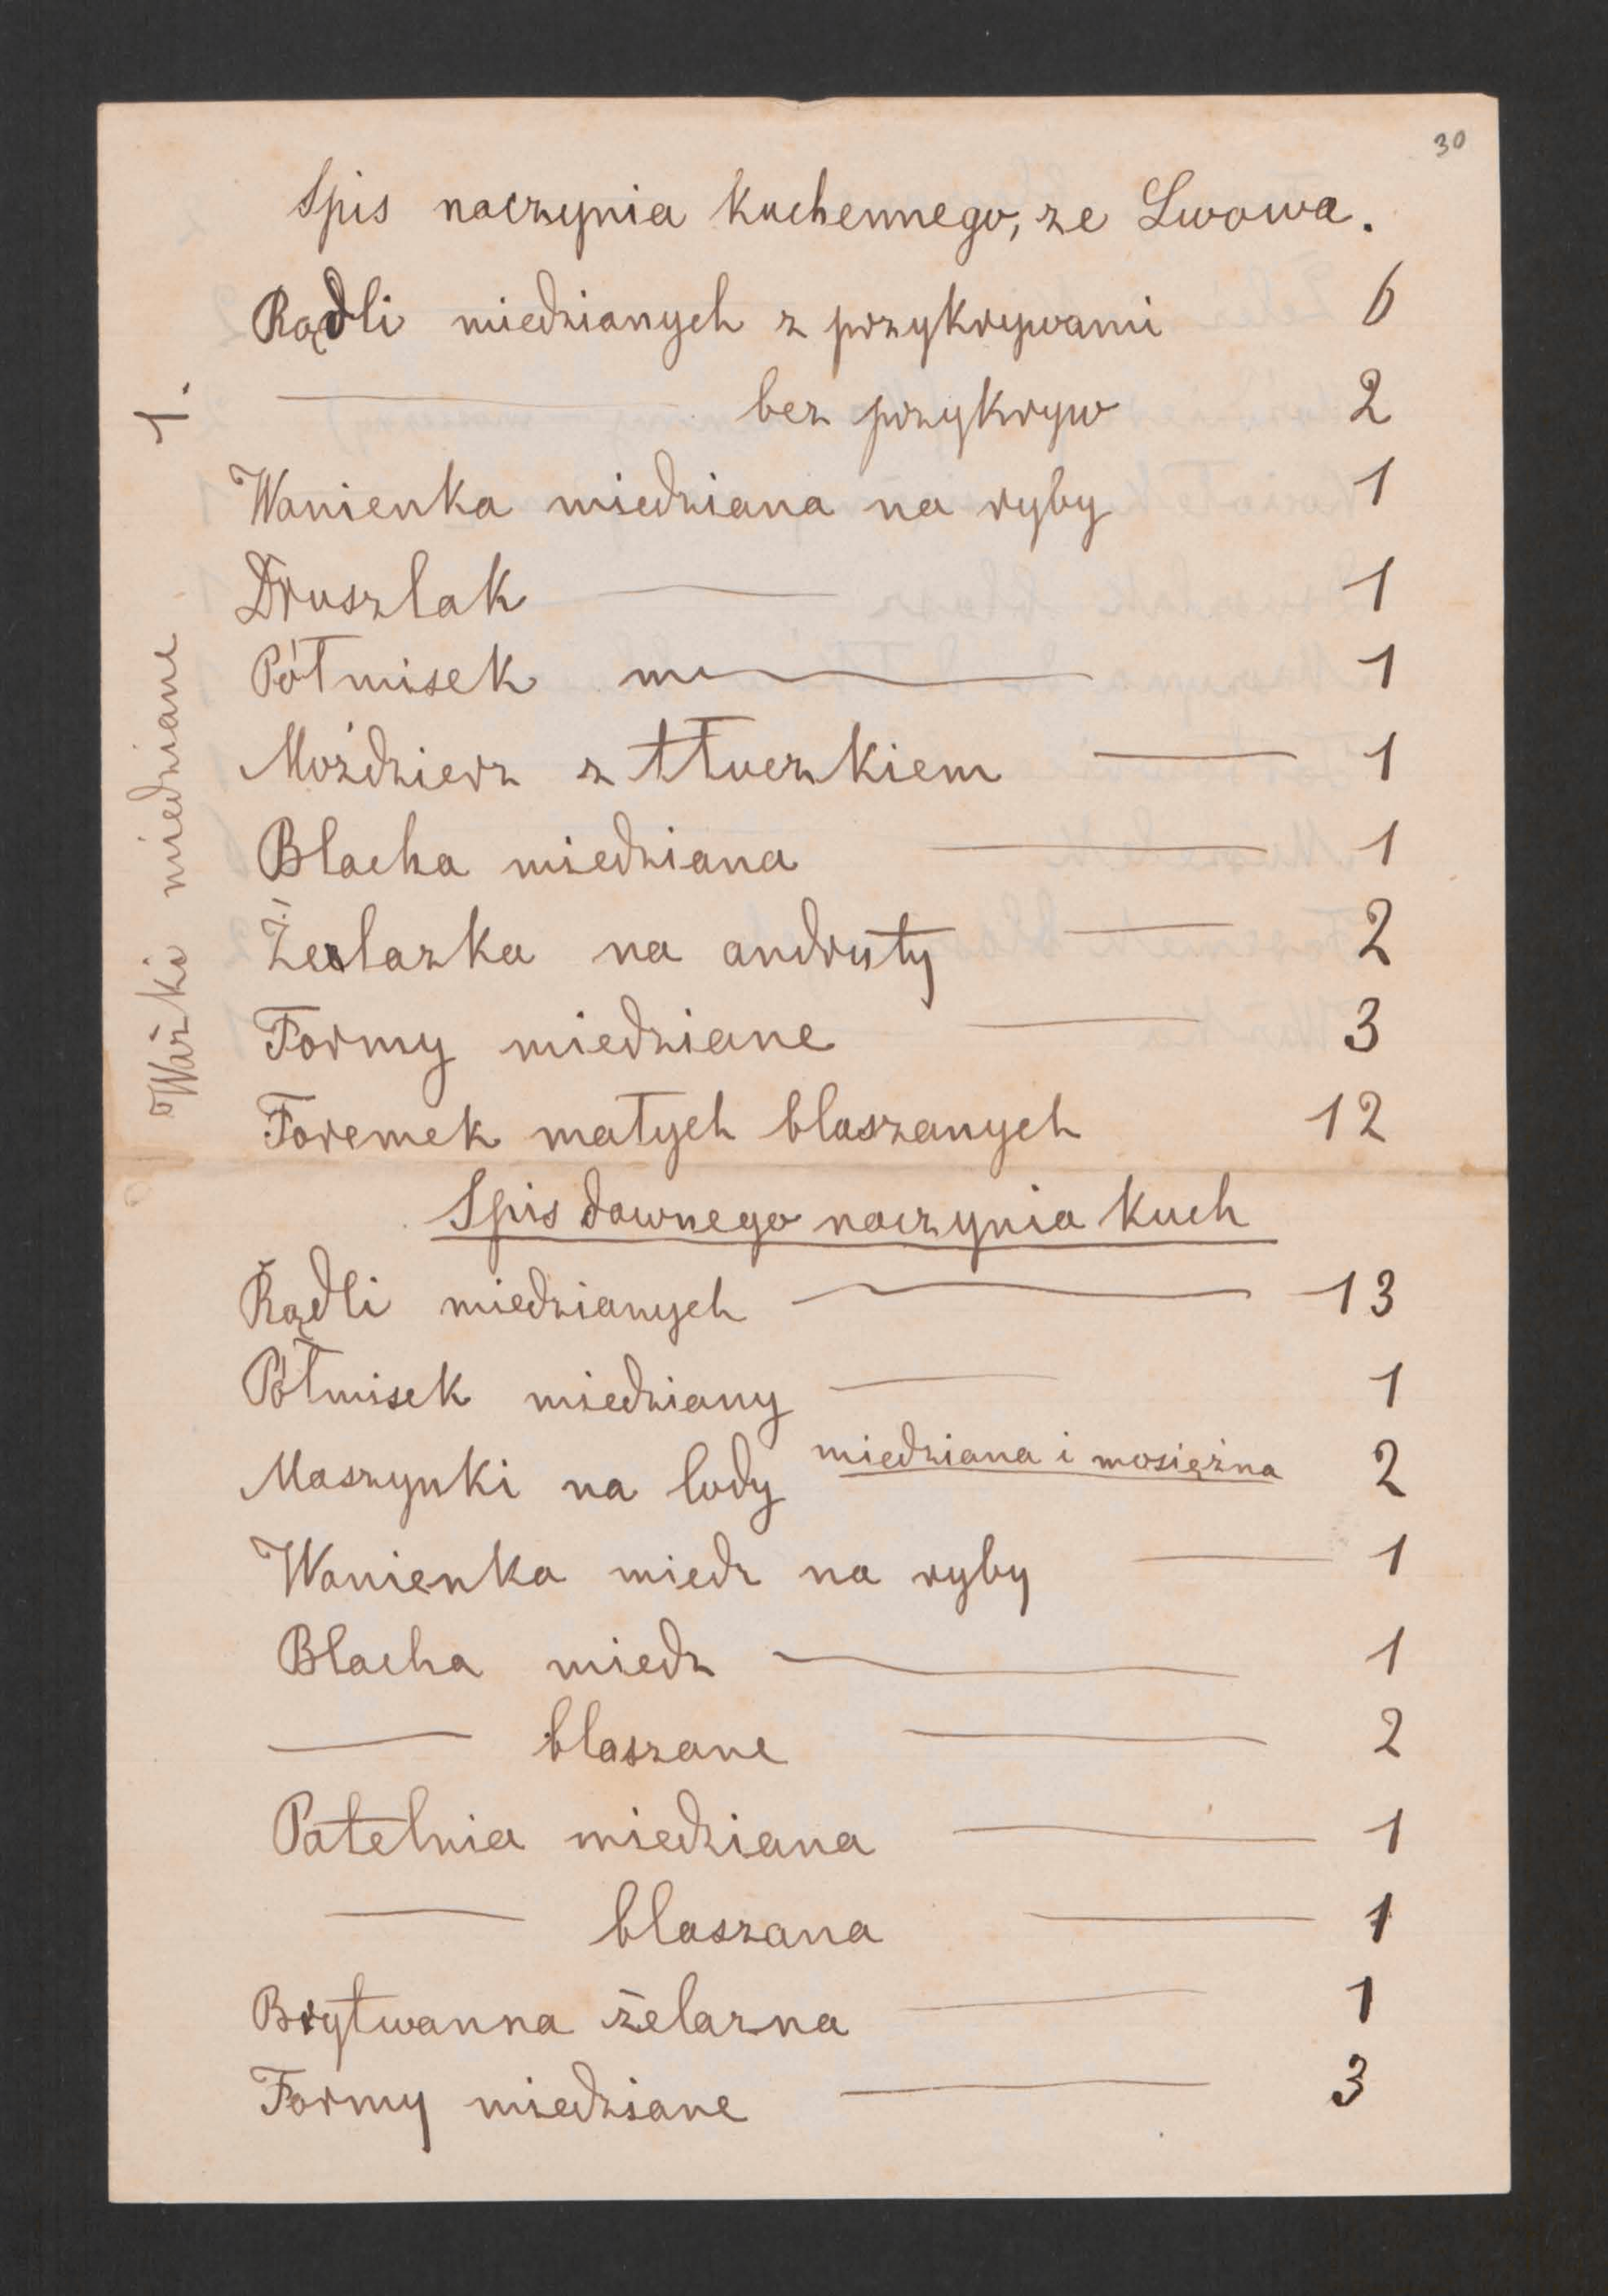 30
Spis naczynia kuchennego, ze Lwowa.
Rądli miedzianych z przykrywami 6
——— bez przykryw 2
Wanienka miedziana na ryby 1
Druszlak ——— 1
Półmisek m——— 1
Moździerz z tłuczkiem ——— 1
Blacha miedziana ——— 1
Żelazka na andruty ——— 2
Formy miedziane ——— 3
Foremek małych blaszanych 12
Ważki miedziane 1.
Spis dawnego naczynia kuch
Rądli miedzianych ——— 13
Półmisek miedziany ——— 1
Maszynki na lody miedziana i mosiężna 2
Wanienka miedz na ryby ——— 1
Blacha miedz ——— 1
——— blaszane ——— 2
Patelnia miedziana ——— 1
——— blaszana ——— 1
Brytwanna żelazna ——— 1
Formy miedziane ——— 3